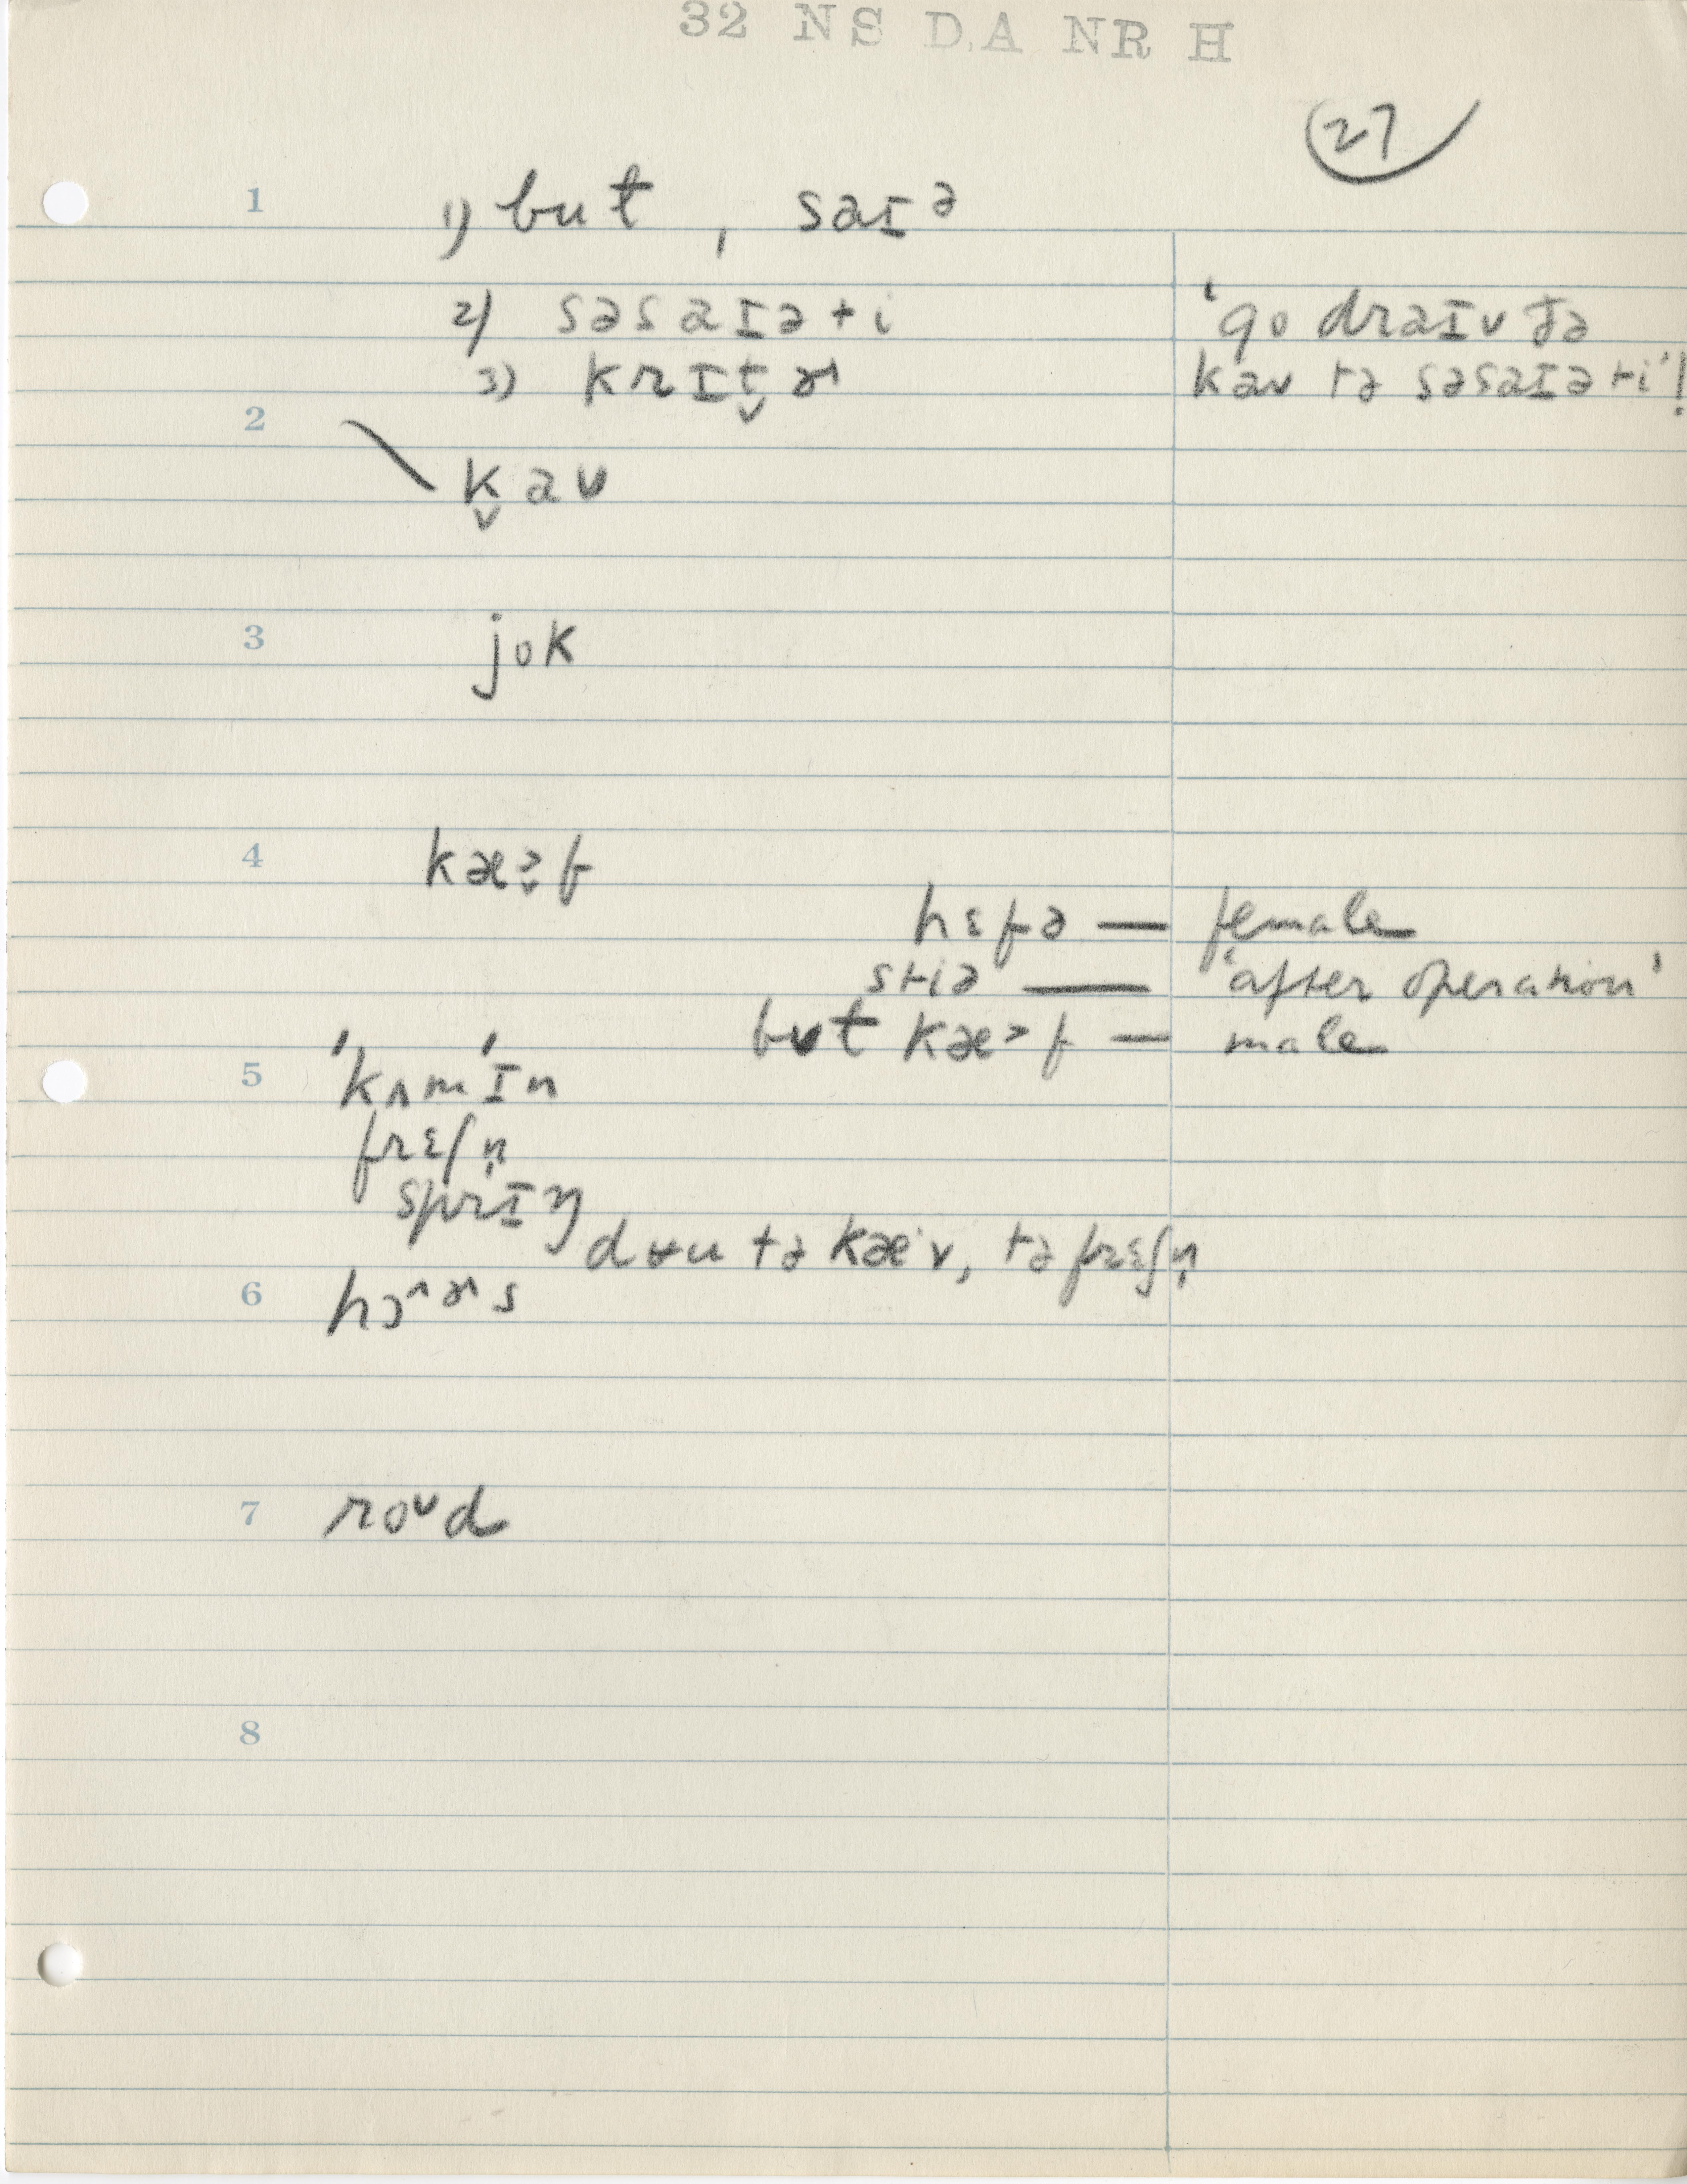 32 NS DA NR H
27
1 1) but, saɪᵊ
2) səsaɪəti 'go draɪv ðə
3) krɪt̬ɚ kav tə səsaɪəti'!
2 k̬av
3 jok
4 kæ>̬f
hɛfə — female
stiə — 'after operation'
but kæ>f — male
5 'kʌm'ɪn
frɛʃn̩
sprɪŋ
du tə kæv, tə frɛʃn̩
6 hɔ^ɚs
7 roᵛd
8